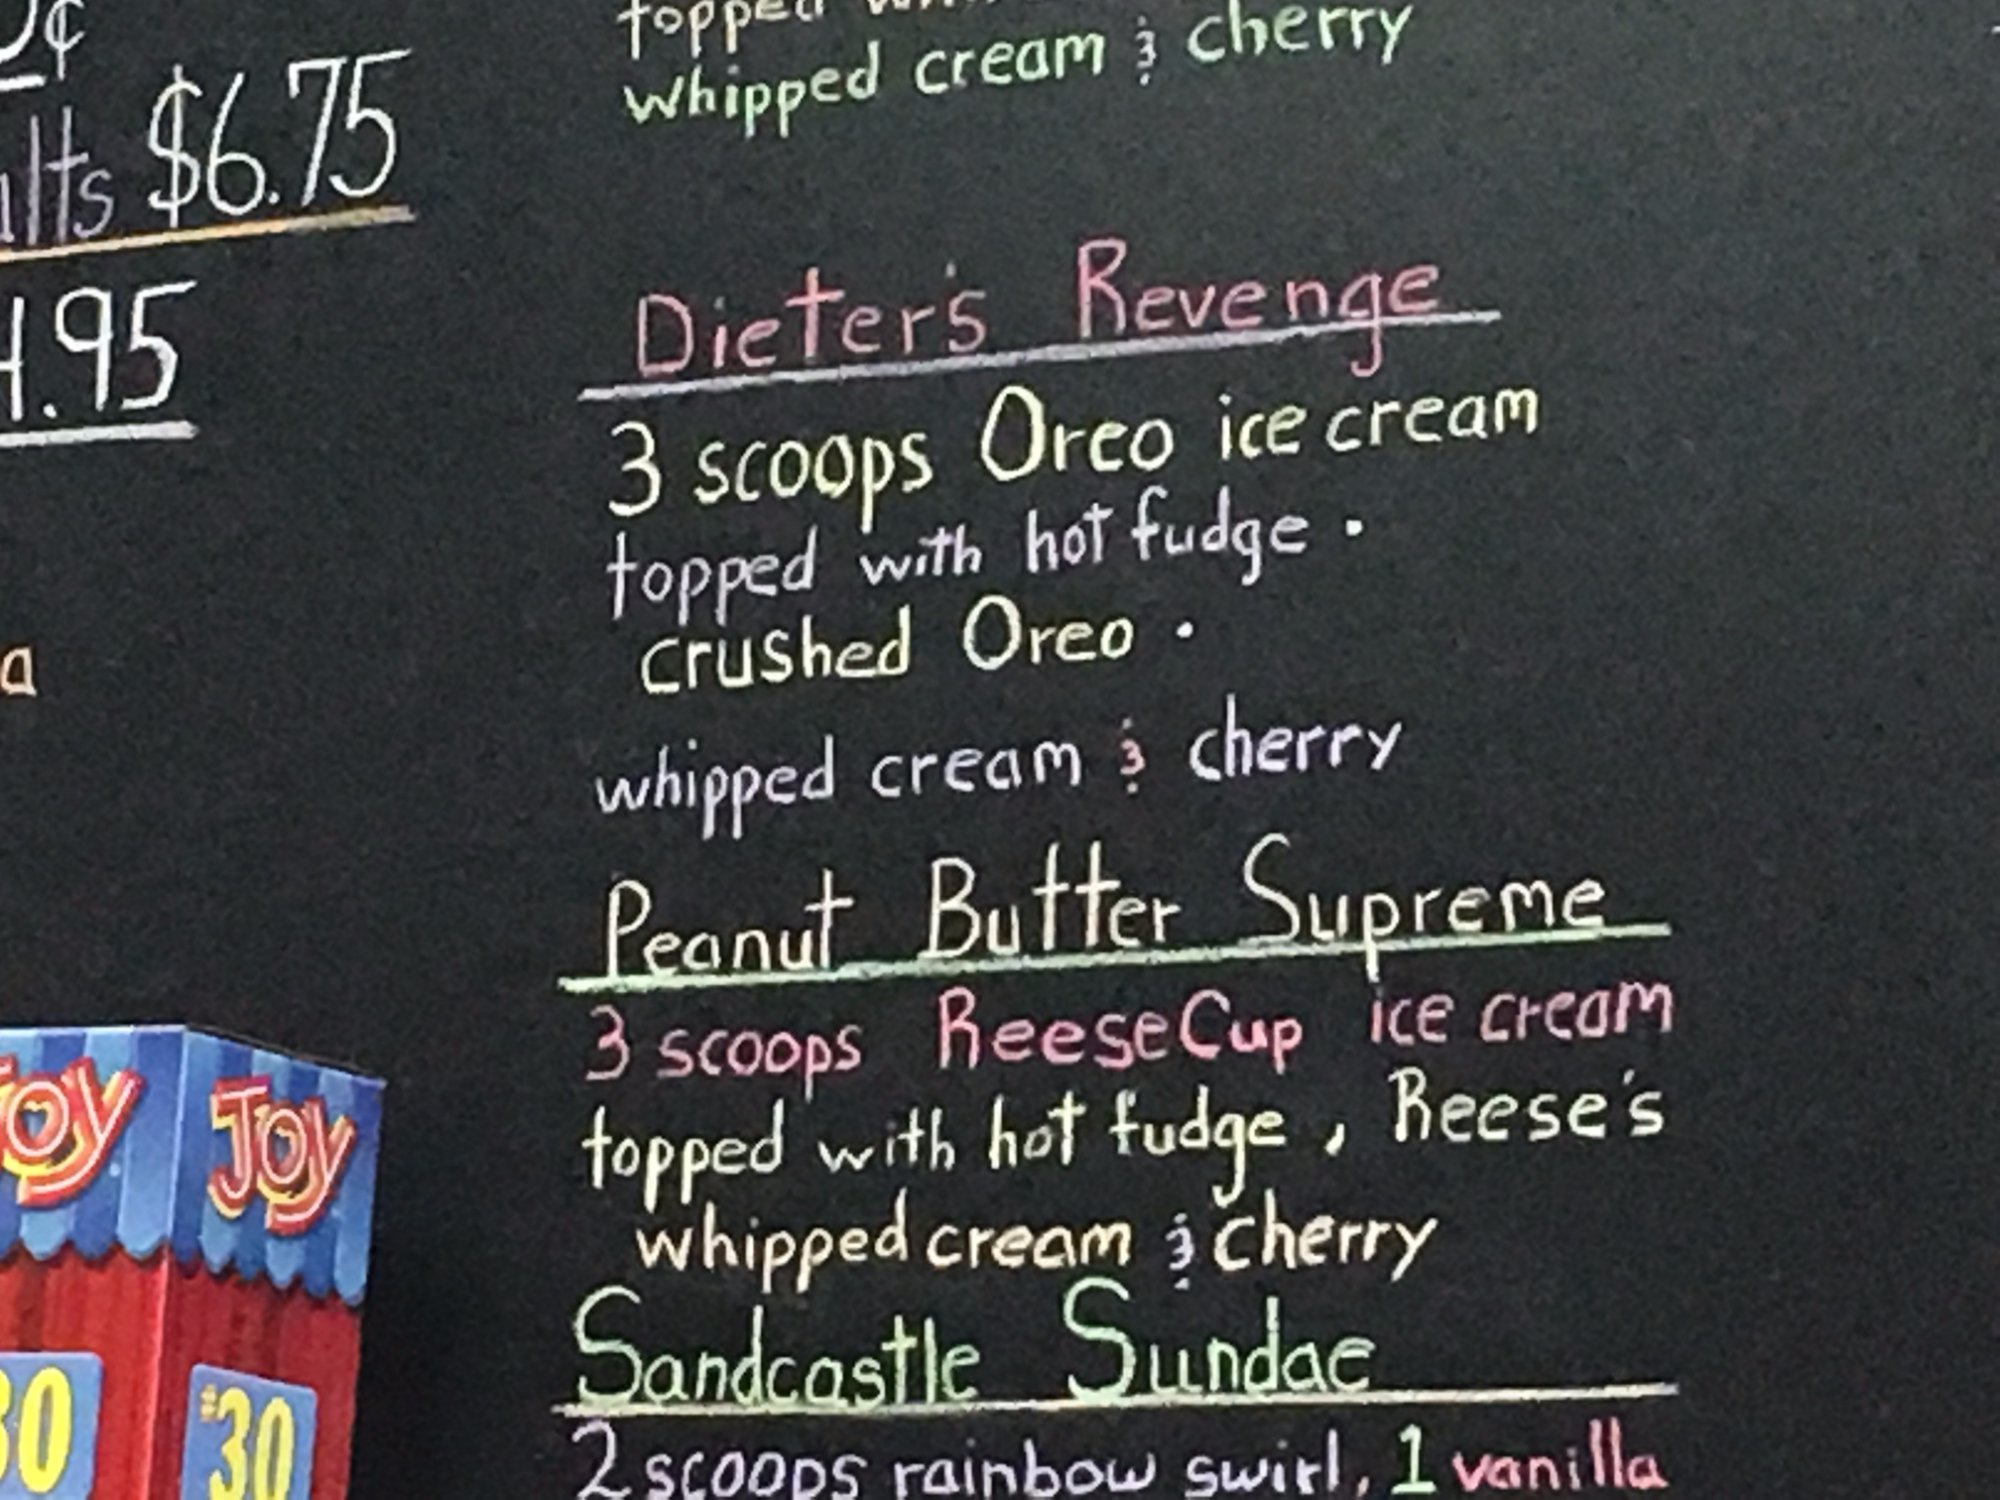 $6.75
.95
a
topped
whipped cream & cherry
Dieter's Revenge
3 scoops Oreo ice cream
topped with hot fudge •
crushed Oreo •
whipped cream & cherry
Peanut Butter Supreme
3 scoops ReeseCup ice cream
topped with hot fudge, Reese's
whipped cream & cherry
Sandcastle Sundae
2 scoops rainbow swirl, 1 vanilla
Joy
Joy
30
#30